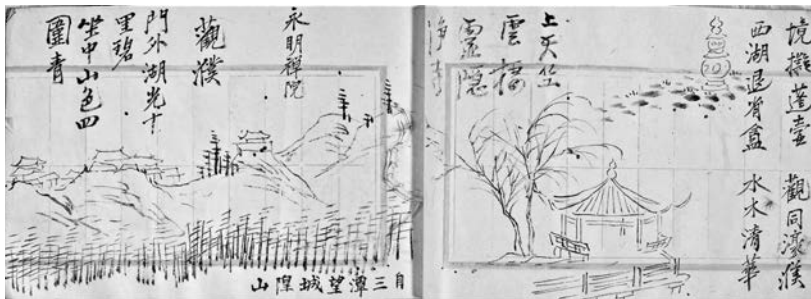 境擬蓬壺 觀同濠濮
西湖退省盦 水木清華
上天竺
雲棲
靈隱
永明禪院
觀濮
門外湖光十
里碧
坐中山色四
圍青
自三潭望城隍山